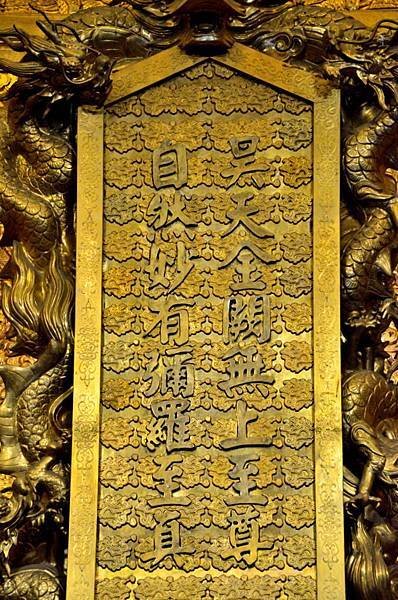 昊天金闕無上至尊
自然妙有彌羅至真